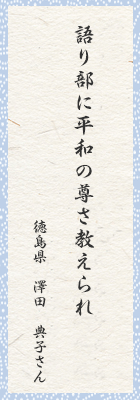 語り部に平和の尊さ教えられ
徳島県　澤田　典子さん